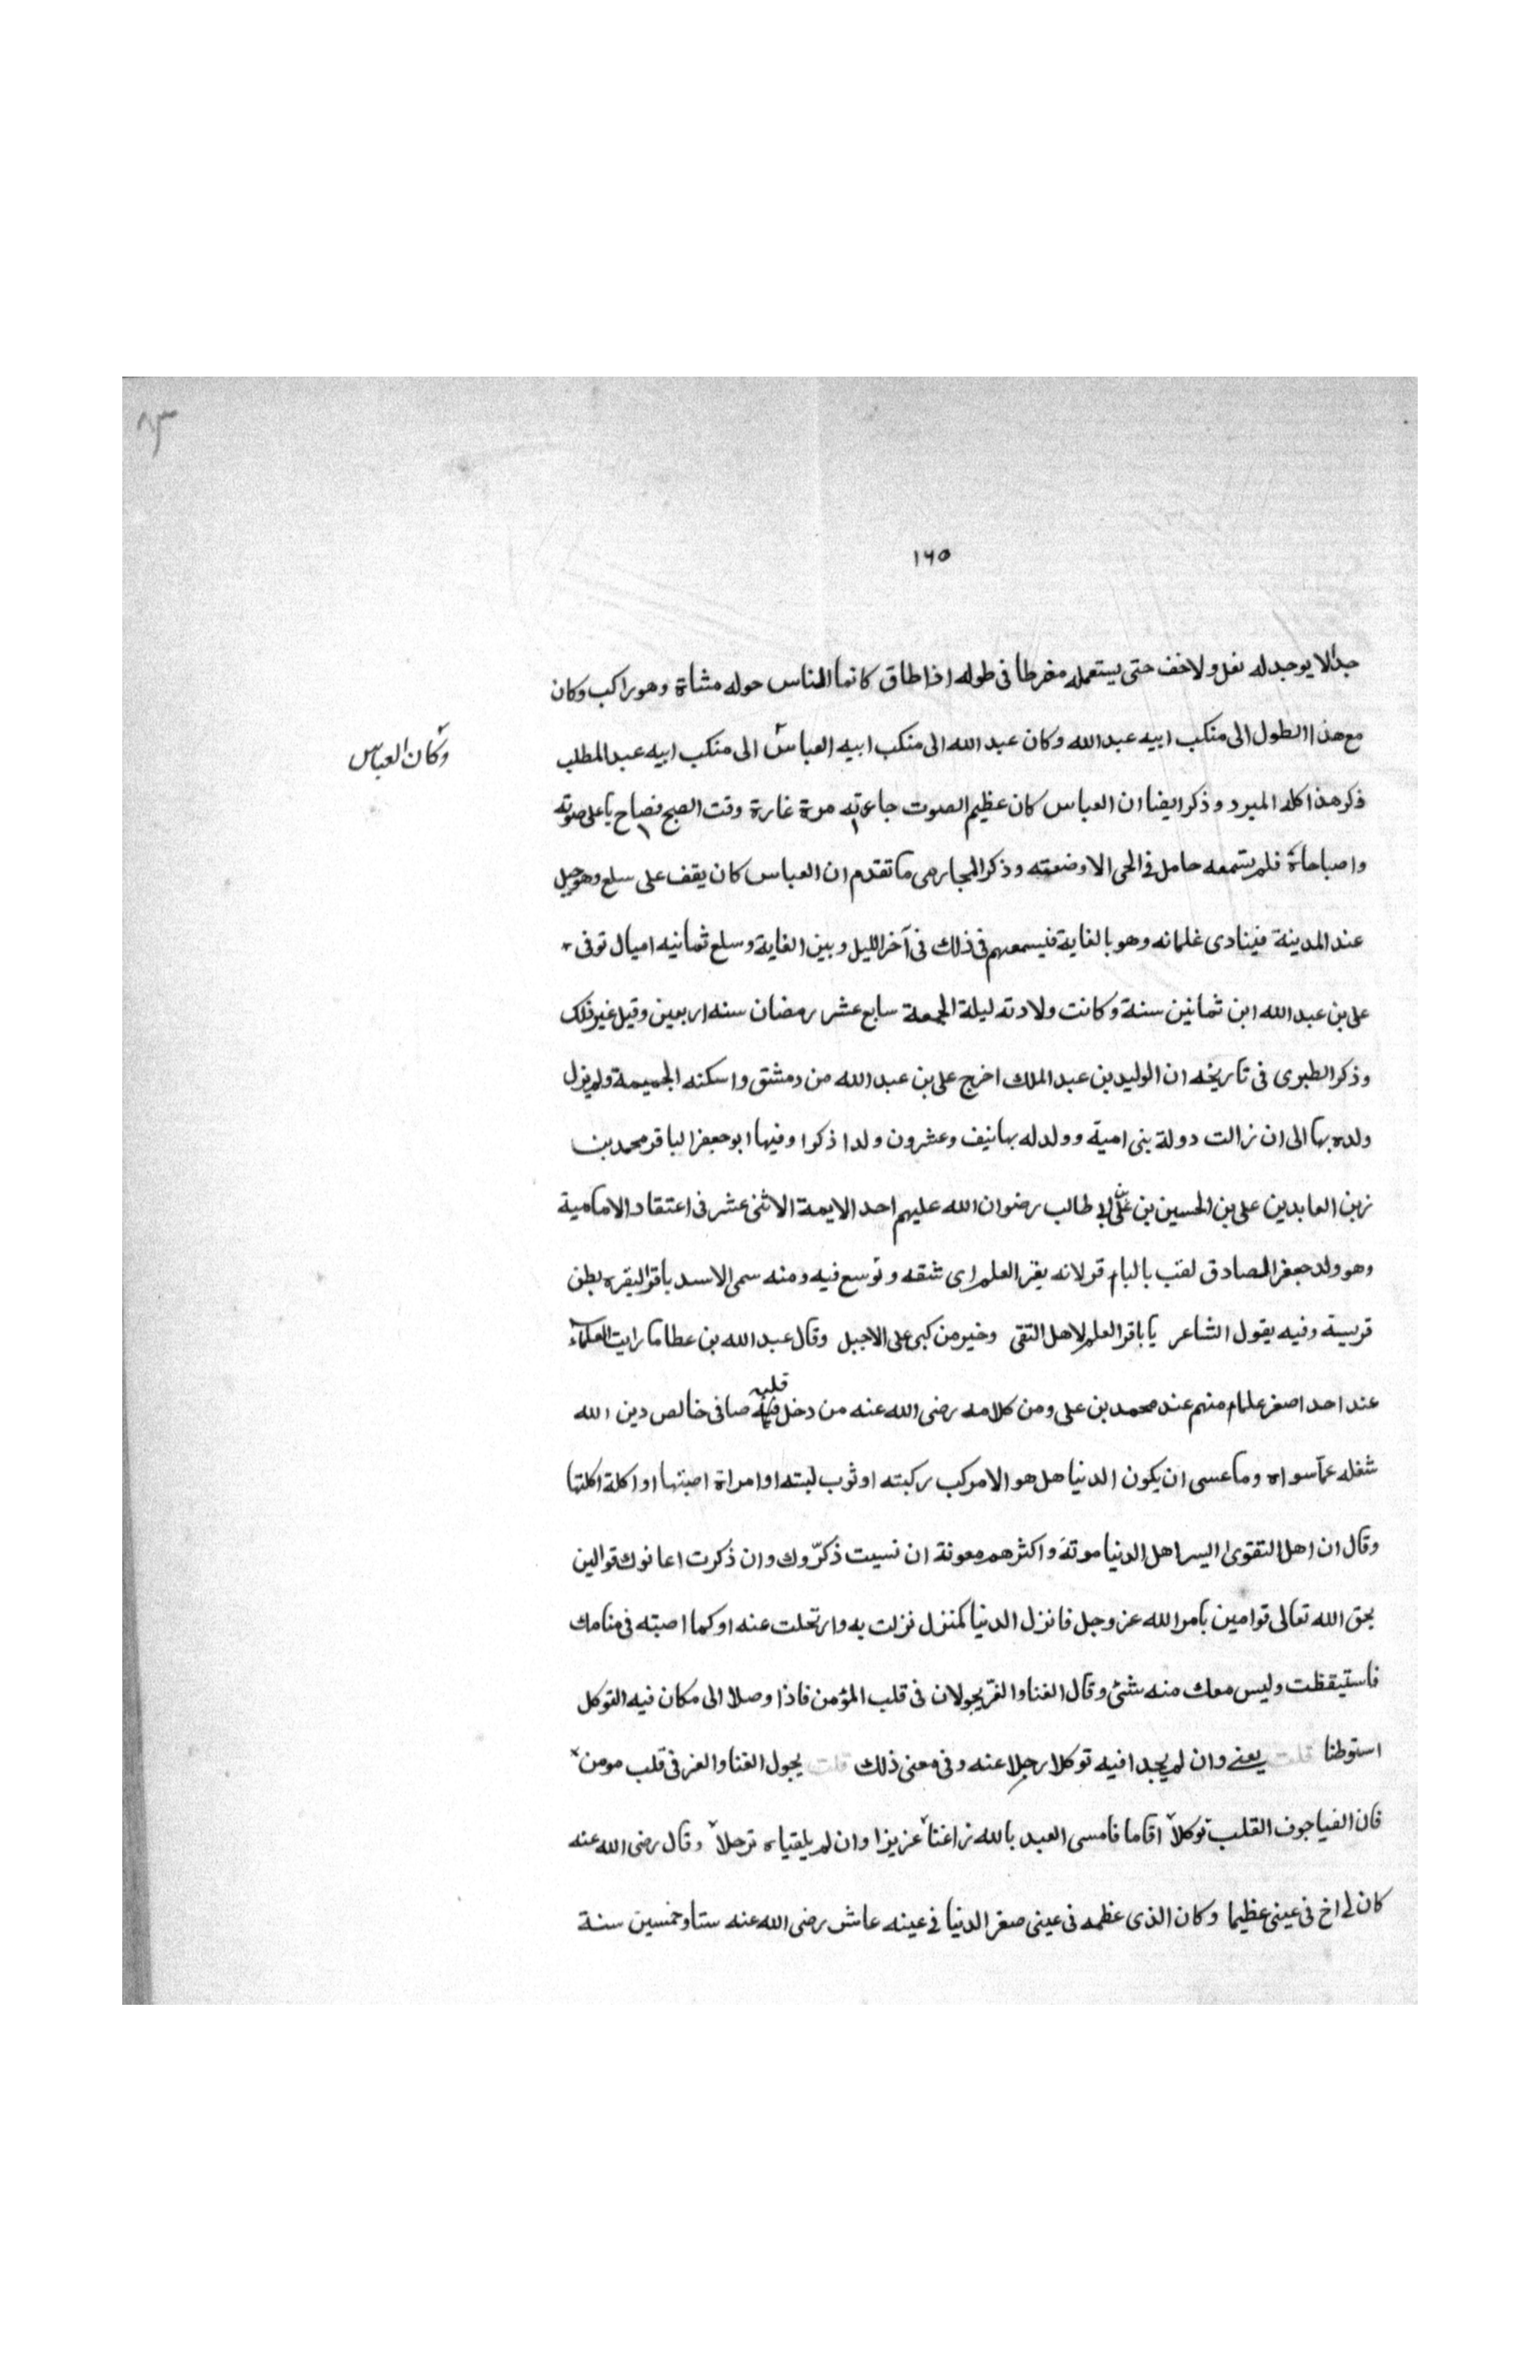 ٨٣
١٦٥
جدا لا يوجد له نعل ولا خف حتى يستعمله مفرطا فى طوله اذا طاق كانما الناس حوله مشاة وهو راكب وكان
مع هذا الطول الى منكب ابيه عبد الله وكان عبد الله الى منكب ابيه العباس الى منكب ابيه عبد المطلب
وكان العباس
ذكر هذا كله المبرد وذكر ايضا ان العباس كان عظيم الصوت جاءته مرة غارة وقت الصبح فصاح باعلى صوته
واصباحاه فلم يستمعه حامل فى الحى الا وضعته وذكر ما تقدم ان العباس كان يقف على سلع وهو جبل
عند المدينة فينادى غلمانه وهو بالغاية فيسمعهم فى ذلك فى آخر الليل وبين الغاية وسلع ثمانيه اميال توفى
على بن عبد الله ابن ثمانين سنة وكانت ولادته ليلة الجمعة سابع عشر رمضان سنه اربعين وقيل غير ذلك
وذكر الطبرى فى تاريخه ان الوليد بن عبد الملك اخرج على بن عبد الله من دمشق واسكنه الجميمة ولم يزل
ولده بها الى ان زالت دولة بنى امية وولد له بها نيف وعشرون ولدا ذكرا وفيها ابو جعفر الباقر محمد بن
زين العابدين على بن الحسين بن على بن ابى طالب رضوان الله عليهم احد الايمة الاثنى عشر فى اعتقاد الامامية
وهو ولد جعفر الصادق لقب بالباقر لانه بقر العلم اى شقه وتوسع فيه ومنه سمى الاسد باقر البقره بطن
قريسة وفيه يقول الشاعر يا باقر العلم لاهل التقى وخير من كبى على الاجبل وقال عبد الله بن عطا ما رايت العلماء
عند احد اصغر علماء منهم عند محمد بن على ومن كلامه رضى الله عنه من دخل قلبه صافى خالص دين الله
شغله عما سواه وما عسى ان يكون الدنيا هل هو الا مركب ركبته او ثوب لبسته او امراة اصبتها او اكلة اكلتها
وقال ان اهل التقوى اليسر اهل الدنيا موتة واكثرهم معونة ان نسيت ذكّروك وان ذكرت اعانوك قوالين
بحق الله تعالى قوامين بامر الله عز وجل فانزل الدنيا كمنزل نزلت به وارتحلت عنه او كما اصبته فى منامك
فاستيقظت وليس معك منه شئ وقال الغنا والعزّ يجولان فى قلب المؤمن فاذا وصلا الى مكان فيه التوكل
استوطنا قلت يعنى وان لم يجدا فيه توكلا رحلا عنه وفى معنى ذلك قلت يجول الغنا والعز فى قلب مومن
فان الفيا جوف القلب توكلا اقاما فامسى العبد بالله ذا غنا عزيزا وان لم يلقياه ترحلا وقال رضى الله عنه
كان لى اخ فى عينى عظيما وكان الذى عظمه فى عينى صغر الدنيا فى عينه عاش رضى الله عنه ستا وخمسين سنة